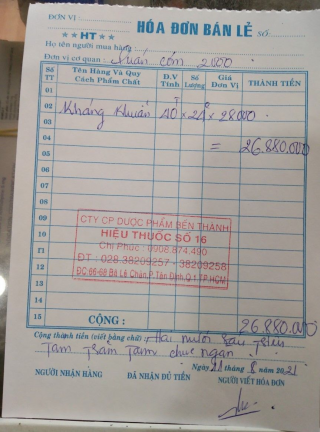 ĐƠN VỊ :
HÓA ĐƠN BÁN LẺ SỐ
★★ HT ★★
Họ tên người mua hàng
Đơn vị cơ quan : Quán cơm 2000
Số TT Tên Hàng Và Quy Cách Phẩm Chất Đ.V Tính Số Lượng Giá Đơn Vị THÀNH TIỀN
01
02 Kháng Khuẩn 40 × 24 × 28000
03
04 = 26.880.000
05
06
07
08
09
10
11
12
13
14
15 CỘNG : 26 880.000
CTY CP DƯỢC PHẨM BẾN THÀNH
HIỆU THUỐC SỐ 16
Chị Phúc : 0908.874.490
ĐT : 028.38209257 - 38209258
ĐC:66-68 Bà Lê Chân,P.Tân Định,Q1-T.P.HCM
Cộng thành tiền (viết bằng chữ) : Hai mươi sáu triệu
Tám Trăm Tám chục ngàn
Ngày 21 tháng 8 năm 2021
NGƯỜI NHẬN HÀNG ĐÃ NHẬN ĐỦ TIỀN NGƯỜI VIẾT HÓA ĐƠN